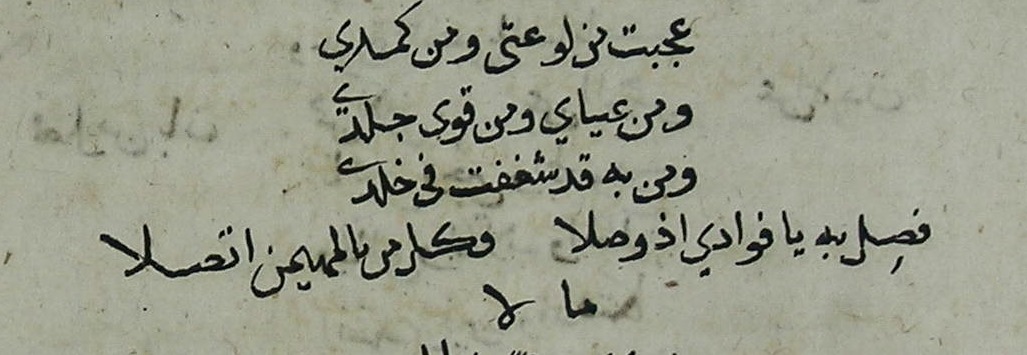 عجبت من لوعتى ومن كمدي
ومن عياي ومن قوى جلدي
ومن به قد شغفت فى خلدي
فصِل به يا فوادي اذ وصلا وكل من بالمهيمن اتصلا
ما لا